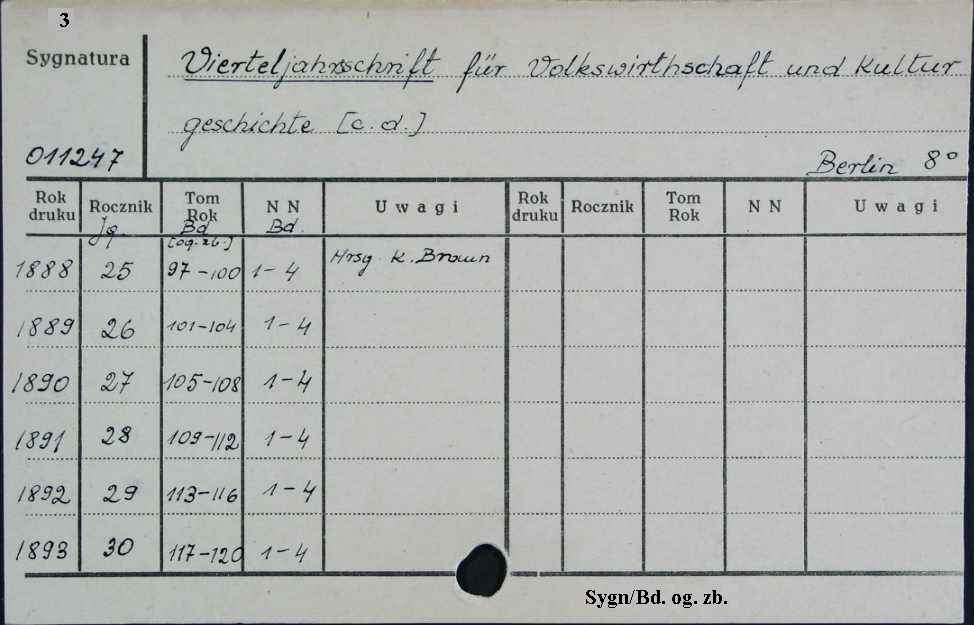 3
Sygnatura
Vierteljahrsschrift für Volkswirthschaft und Kultur
geschichte [c. d.]
011247
Berlin 8°
Rok druku Rocznik Tom Rok N N Uwagi Rok druku Rocznik Tom Rok N N Uwagi
Jg. Bd [og. zb.] Bd.
1888 25 97-100 1-4 Hrsg. K. Braun
1889 26 101-104 1-4
1890 27 105-108 1-4
1891 28 109-112 1-4
1892 29 113-116 1-4
1893 30 117-120 1-4
Sygn/Bd. og. zb.